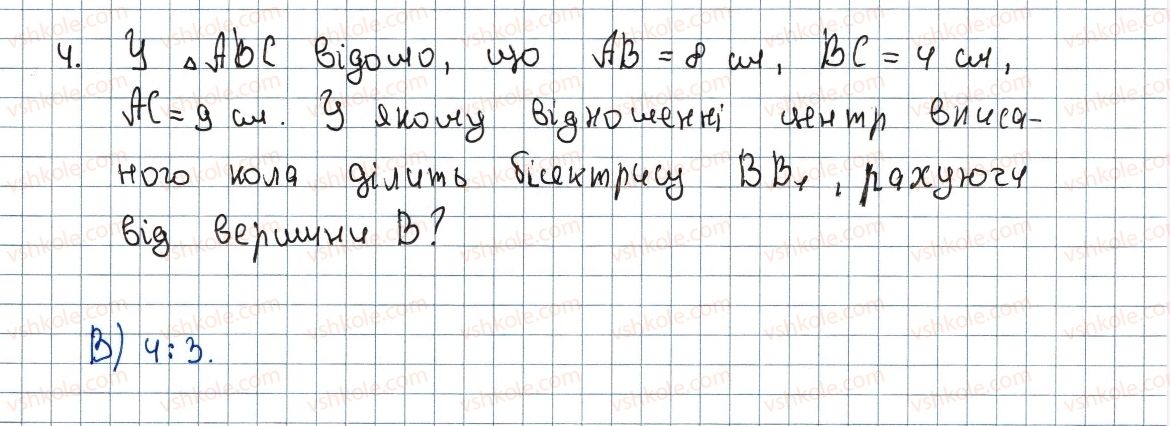 4. У △ABC відомо, що AB = 8 см, BC = 4 см,
AC = 9 см. У якому відношенні центр вписа-
ного кола ділить бісектрису BB₁, рахуючи
від вершини B?
В) 4:3.